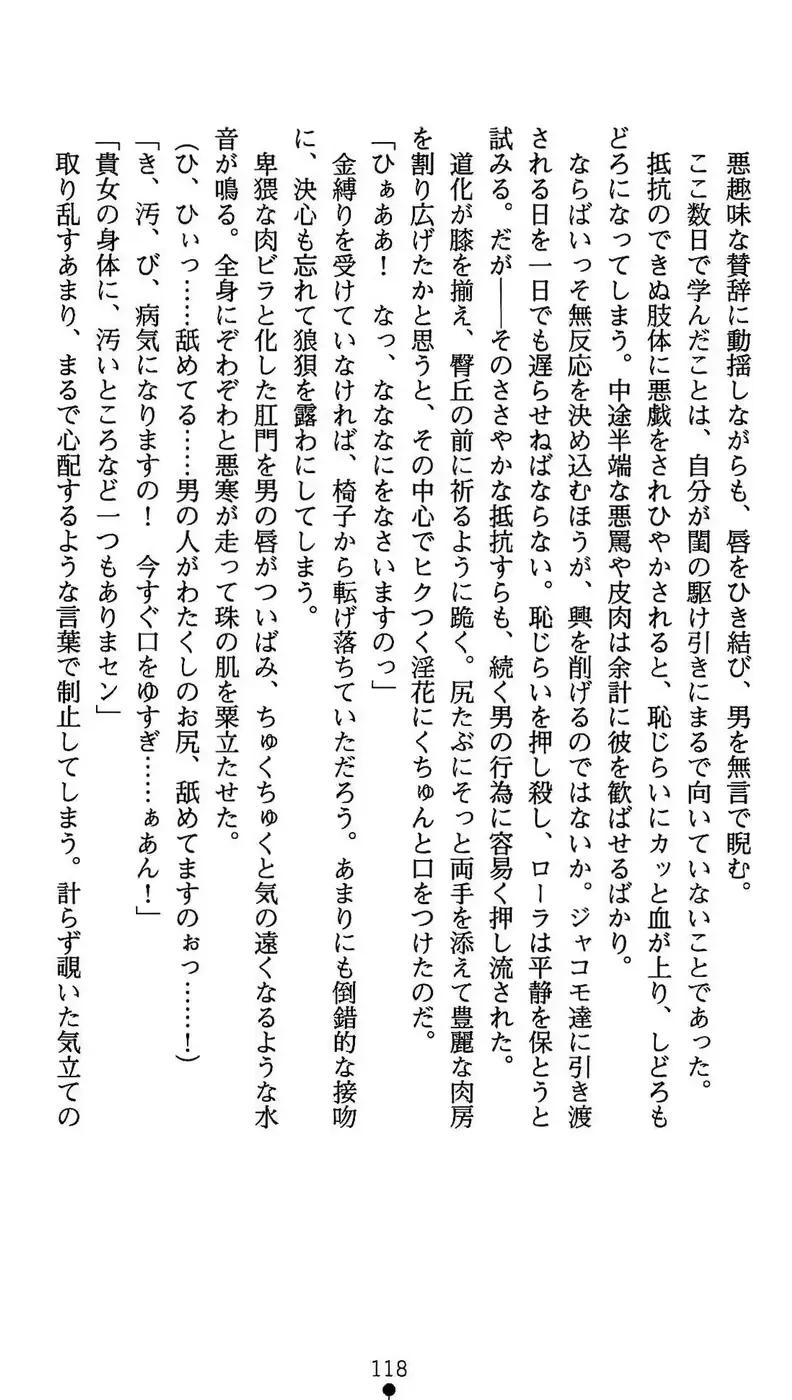 悪趣味な賛辞に動揺しながらも、唇をひき結び、男を無言で睨む。
ここ数日で学んだことは、自分が閨の駆け引きにまるで向いていないことであった。
抵抗のできぬ肢体に悪戯をされひやかされると、恥じらいにカッと血が上り、しどろも
どろになってしまう。中途半端な悪罵や皮肉は余計に彼を歓ばせるばかり。
ならばいっそ無反応を決め込むほうが、興を削げるのではないか。ジャコモ達に引き渡
される日を一日でも遅らせねばならない。恥じらいを押し殺し、ローラは平静を保とうと
試みる。だが――そのささやかな抵抗すらも、続く男の行為に容易く押し流された。
道化が膝を揃え、臀丘の前に祈るように跪く。尻たぶにそっと両手を添えて豊麗な肉房
を割り広げたかと思うと、その中心でヒクつく淫花にくちゅんと口をつけたのだ。
「ひぁああ！　なっ、なななにをなさいますのっ」
金縛りを受けていなければ、椅子から転げ落ちていただろう。あまりにも倒錯的な接吻
に、決心も忘れて狼狽を露わにしてしまう。
卑猥な肉ビラと化した肛門を男の唇がついばみ、ちゅくちゅくと気の遠くなるような水
音が鳴る。全身にぞわぞわと悪寒が走って珠の肌を粟立たせた。
（ひ、ひぃっ……舐めてる……男の人がわたくしのお尻、舐めてますのぉっ……！）
「き、汚、び、病気になりますの！　今すぐ口をゆすぎ……ぁあん！」
「貴女の身体に、汚いところなど一つもありまセン」
取り乱すあまり、まるで心配するような言葉で制止してしまう。計らず覗いた気立ての
118